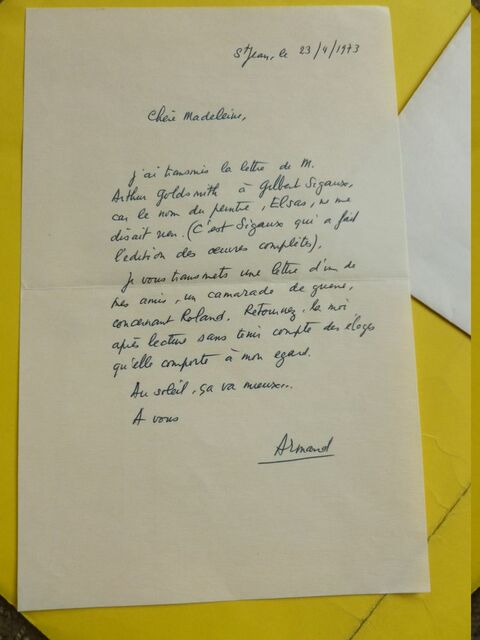 St Jean, le 23/4/1973
Chère Madeleine,
j'ai transmis la lettre de M.
Arthur Goldsmith à Gilbert Sigaux,
car le nom du peintre, Elsas, ne me
disait rien. (C'est Sigaux qui a fait
l'édition des oeuvres complètes).
Je vous transmets une lettre d'un de
mes amis, un camarade de guerre,
concernant Roland. Retournez-la moi
après lecture sans tenir compte des éloges
qu'elle comporte à mon égard.
Au soleil, ça va mieux...
A vous
Armand